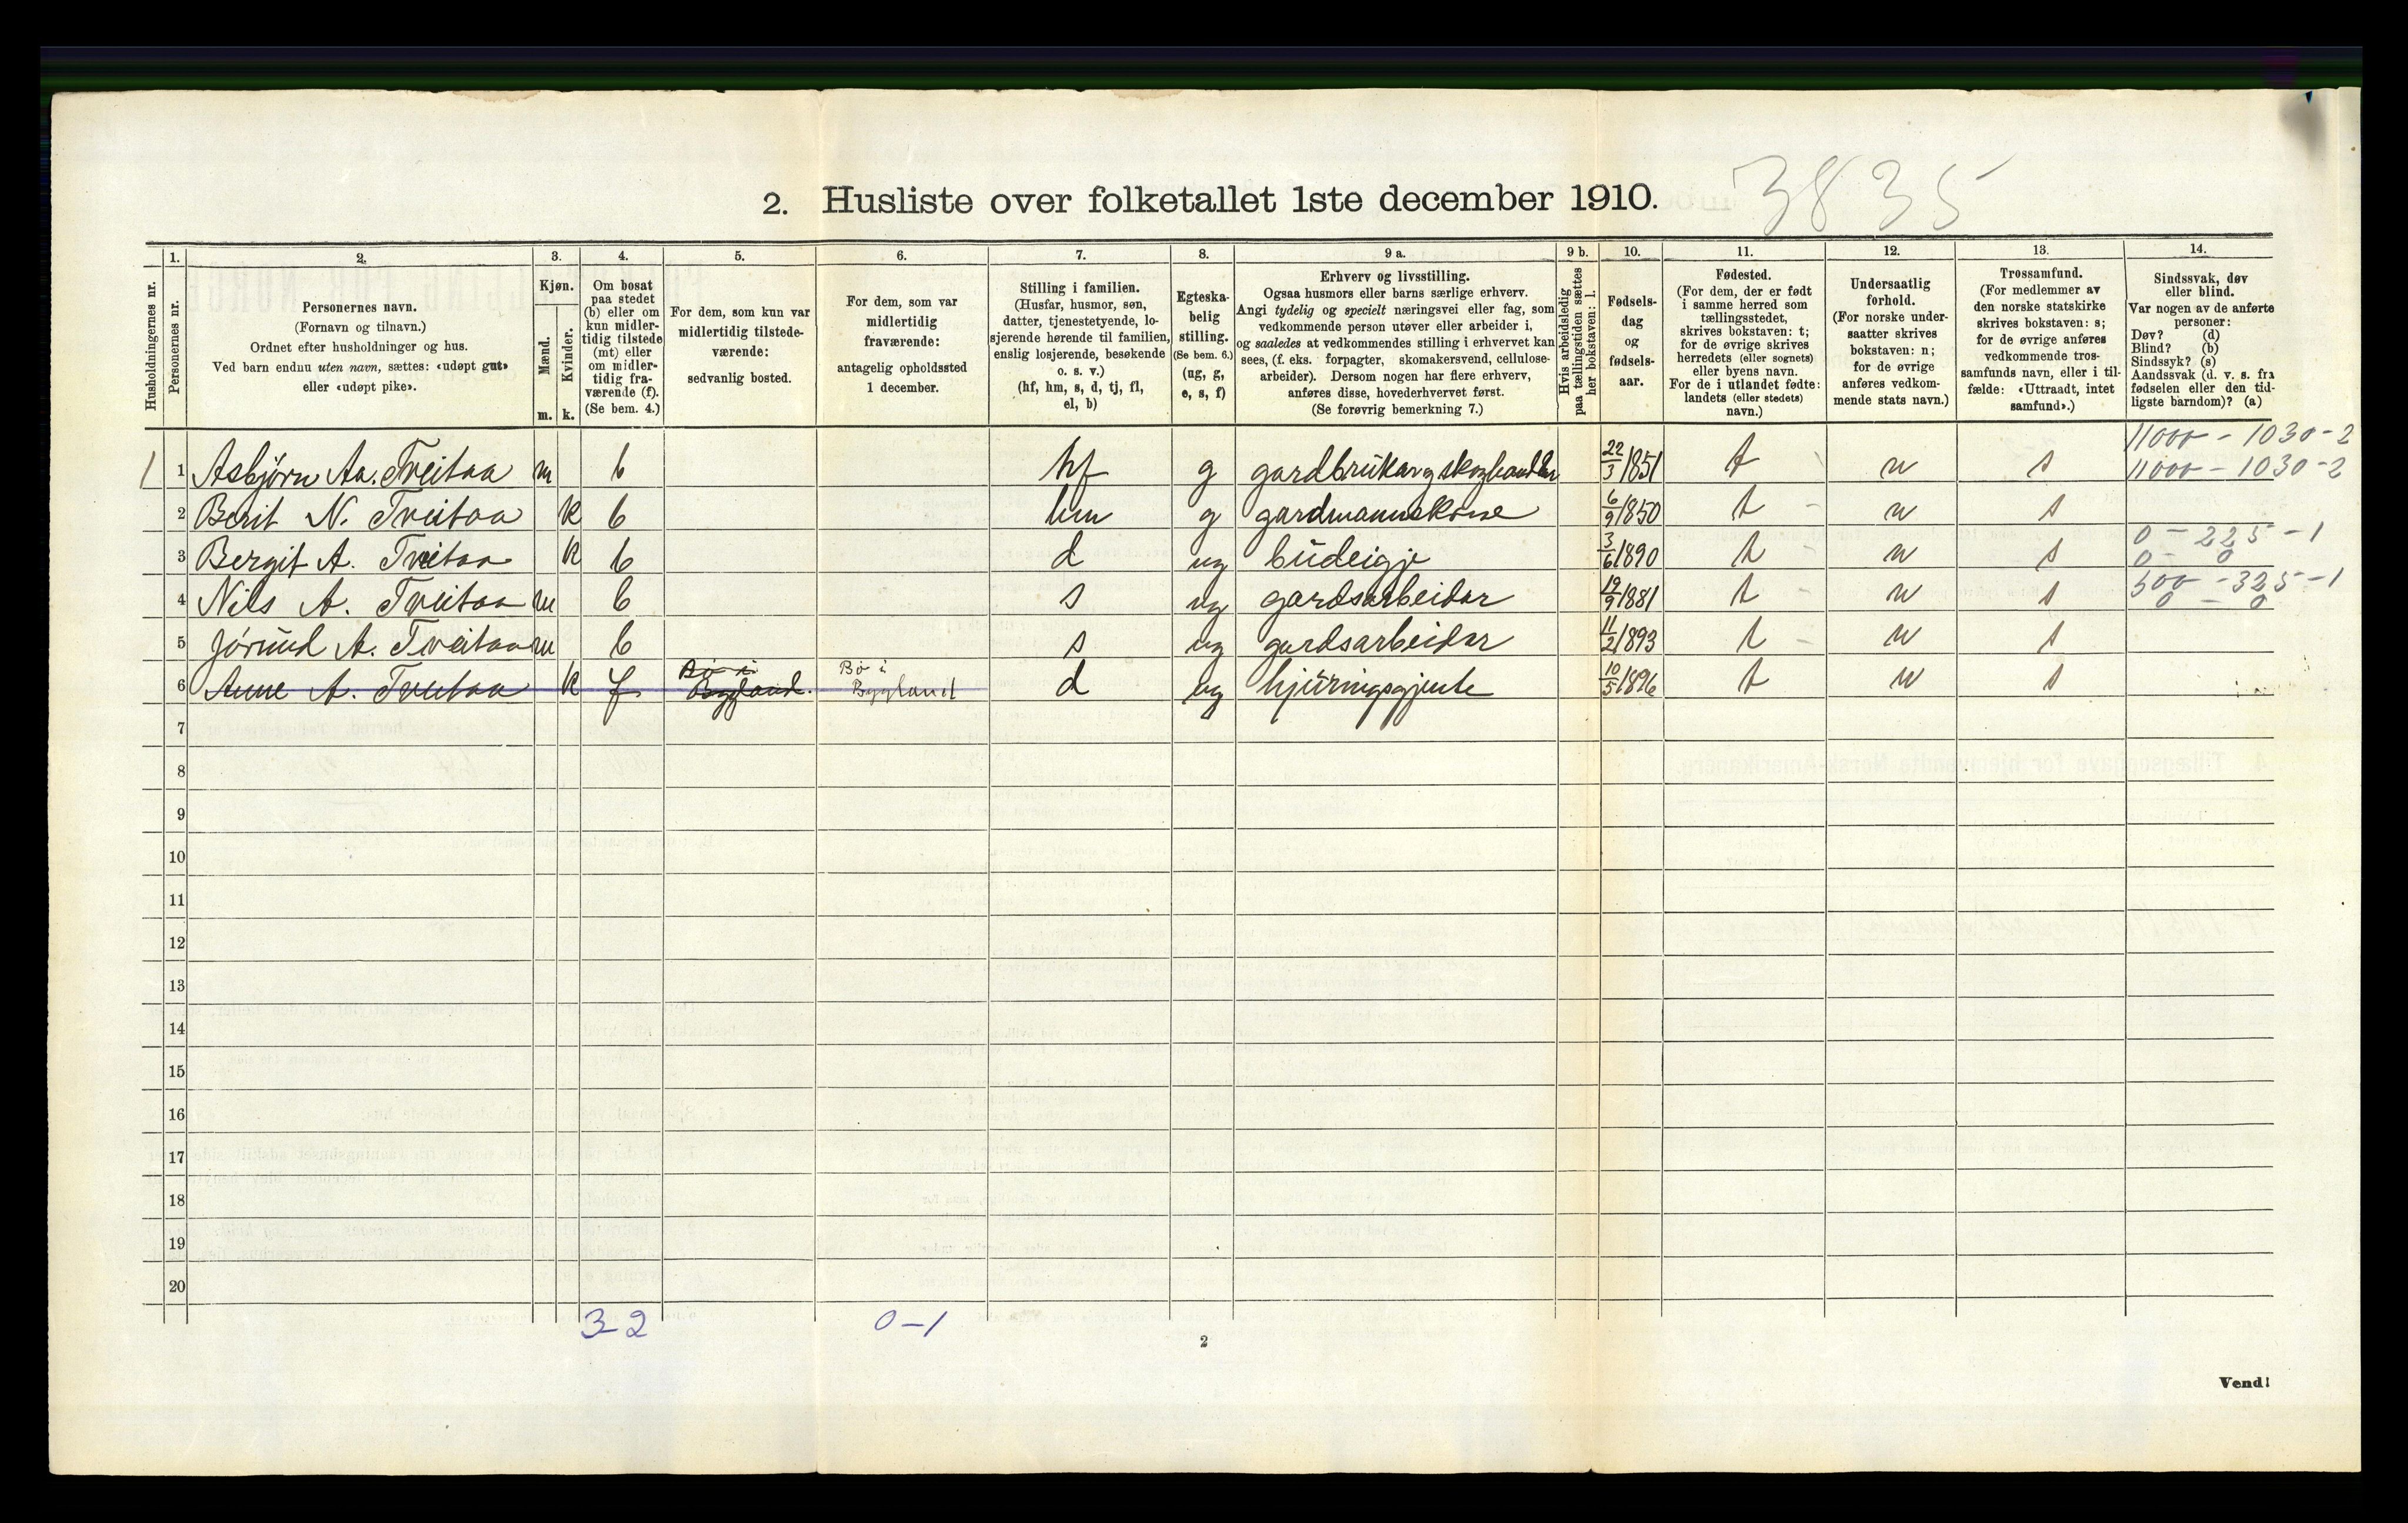 3835
2. Husliste over folketallet 1ste december 1910.
1. 2. 3. 4. 5. 6. 7. 8. 9 a. 9 b. 10. 11. 12. 13. 14.
Husholdningernes nr.
Personernes nr.
Personernes navn.
(Fornavn og tilnavn.)
Ordnet efter husholdninger og hus.
Ved barn endnu uten navn, sættes: «udøpt gut»
eller «udøpt pike».
Kjøn.
Mænd.
Kvinder.
m. k.
Om bosat
paa stedet
(b) eller om
kun midler-
tidig tilstede
(mt) eller
om midler-
tidig fra-
værende (f).
(Se bem. 4.)
For dem, som kun var
midlertidig tilstede-
værende:
sedvanlig bosted.
For dem, som var
midlertidig
fraværende:
antagelig opholdssted
1 december.
Stilling i familien.
(Husfar, husmor, søn,
datter, tjenestetyende, lo-
sjerende hørende til familien,
enslig losjerende, besøkende
o. s. v.)
(hf, hm, s, d, tj, fl,
el, b)
Egteska-
belig
stilling.
(Se bem. 6.)
(ug, g,
e, s, f)
Erhverv og livsstilling.
Ogsaa husmors eller barns særlige erhverv.
Angi tydelig og specielt næringsvei eller fag, som
vedkommende person utøver eller arbeider i,
og saaledes at vedkommendes stilling i erhvervet kan
sees, (f. eks. forpagter, skomakersvend, cellulose-
arbeider). Dersom nogen har flere erhverv,
anføres disse, hovederhvervet først.
(Se forøvrig bemerkning 7.)
Hvis arbeidsledig
paa tællingstiden sættes
her bokstaven: l.
Fødsels-
dag
og
fødsels-
aar.
Fødested.
(For dem, der er født
i samme herred som
tællingsstedet,
skrives bokstaven: t;
for de øvrige skrives
herredets (eller sognets)
eller byens navn.
For de i utlandet fødte:
landets (eller stedets)
navn.)
Undersaatlig
forhold.
(For norske under-
saatter skrives
bokstaven: n;
for de øvrige
anføres vedkom-
mende stats navn.)
Trossamfund.
(For medlemmer av
den norske statskirke
skrives bokstaven: s;
for de øvrige anføres
vedkommende tros-
samfunds navn, eller i til-
fælde: «Uttraadt, intet
samfund».)
Sindssvak, døv
eller blind.
Var nogen av de anførte
personer:
Døv? (d)
Blind? (b)
Sindssyk? (s)
Aandssvak (d. v. s. fra
fødselen eller den tid-
ligste barndom)? (a)
11000 - 1030-2
1 1 Asbjørn Aa. Tveitaa m b hf g gardbrukar og skoghandler 22/3 1851 t n s 11000 - 1030-2
2 Berit N. Tveitaa k b hm g gardmannskone 6/9 1850 t n s
0 - 225 - 1
3 Bergit A. Tveitaa k b d ug budeigje 3/6 1890 t n s 0 - 0
500 - 325 - 1
4 Nils A. Tveitaa m b s ug gardsarbeidar 19/9 1881 t n s 0 - 0
5 Jørund A. Tveitaa m b s ug gardsarbeidar 11/2 1893 t n s
Bø i Bø i
6 Anne A. Tveitaa k f Bygland. Bygland d ug hjuringsgjente 10/5 1896 t n s
7
8
9
10
11
12
13
14
15
16
17
18
19
20
3-2 0-1
2
Vend!